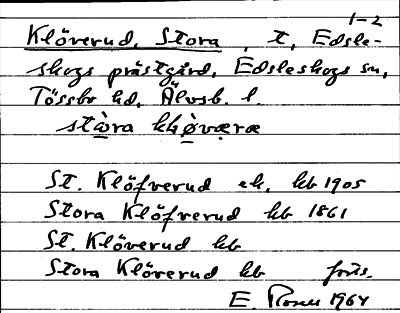 1-2
Klöverud, Stora, t, Edsle-
skogs prästgård, Edsleskogs sn,
Tössbo hd. Älvsb. l.
stɷ̀ra khø̀væræ
St. Klöfverud ek. kb 1905
Stora Klöfverud kb 1861
St. Klöverud kb
Stora Klöverud kb förs.
E. 1964